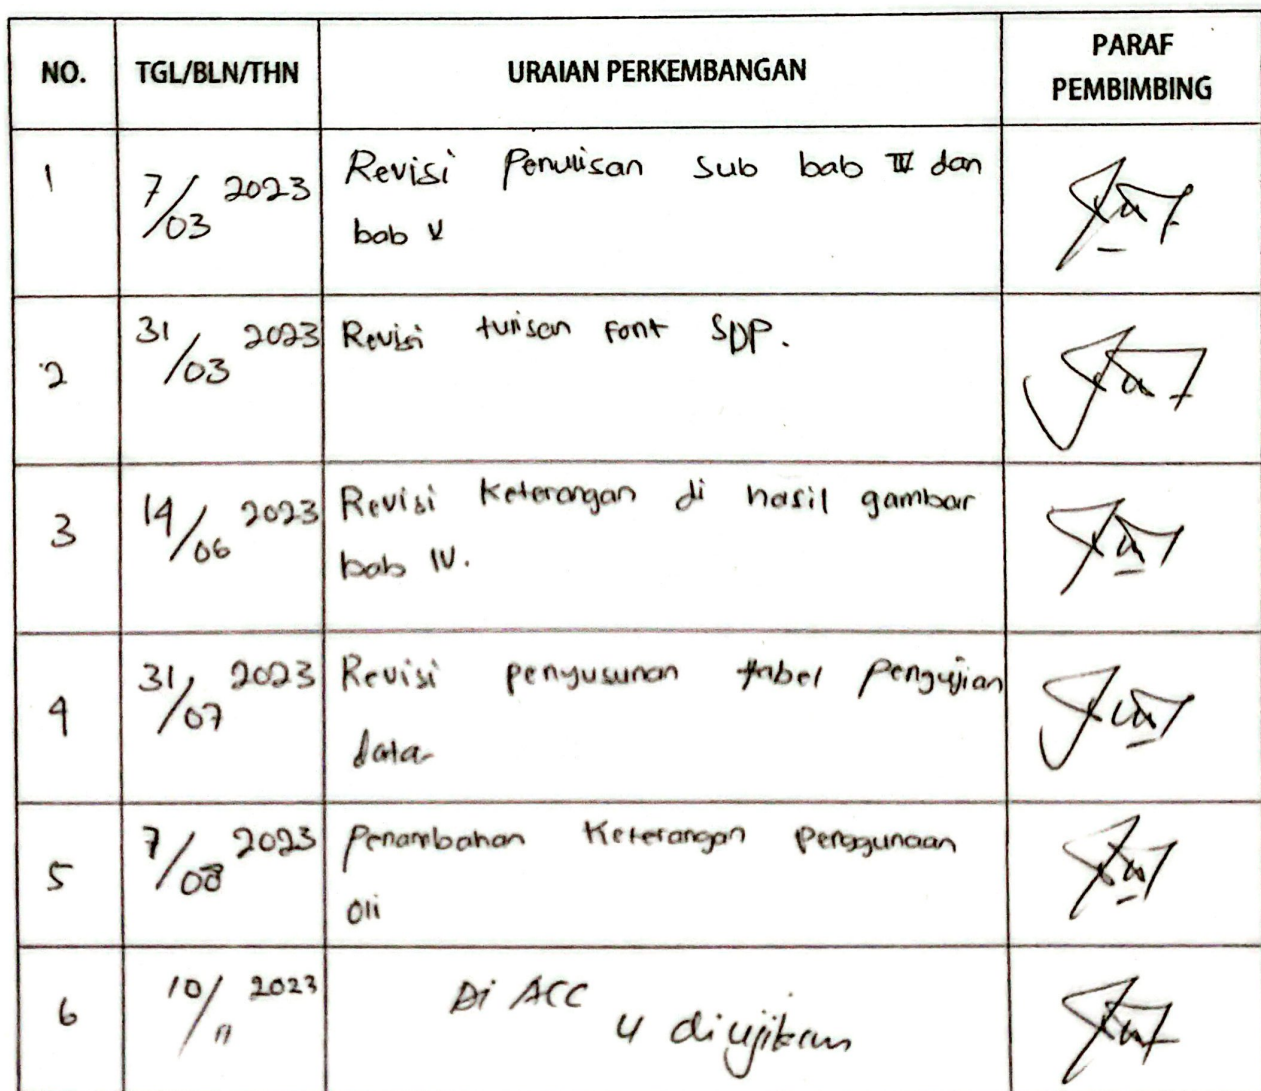 NO. TGL/BLN/THN URAIAN PERKEMBANGAN PARAF PEMBIMBING
1 7/03 2023 Revisi Penulisan sub bab IV dan
bab V
2 31/03 2023 Revisi tulisan font SDP.
3 14/06 2023 Revisi Keterangan di hasil gambar
bab IV.
4 31/07 2023 Revisi penyusunan tabel Pengujian
data
5 7/08 2023 Penambahan Keterangan Penggunaan
Oli
6 10/11 2023 Di ACC
u diujikan